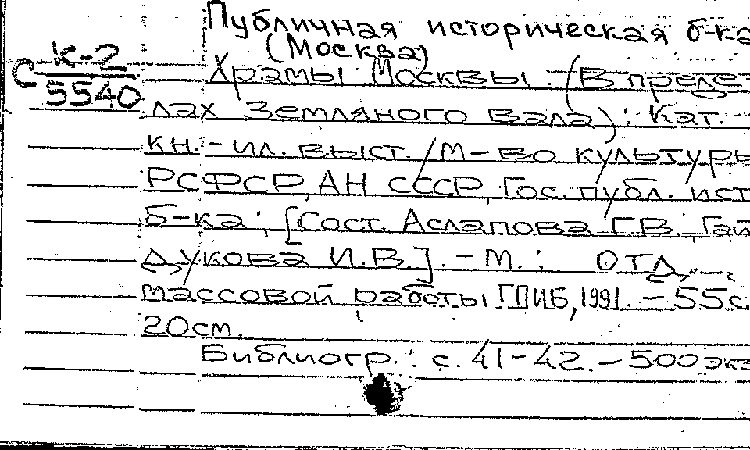 Публичная историческая б-ка
(Москва)
С К-2
5540
Храмы Москвы. (В преде-
лах Земляного Вала): Кат.
кн.-ил. выст. / М-во культуры
РСФСР, АН СССР, Гос. публ. ист.
б-ка; [Сост. Асланова Г.В., Гай
дукова И.В.]. - М.: отд.
массовой работы ГПИБ, 1991. - 55 с.
20 см.
Библиогр.: с. 41-42. - 500 экз